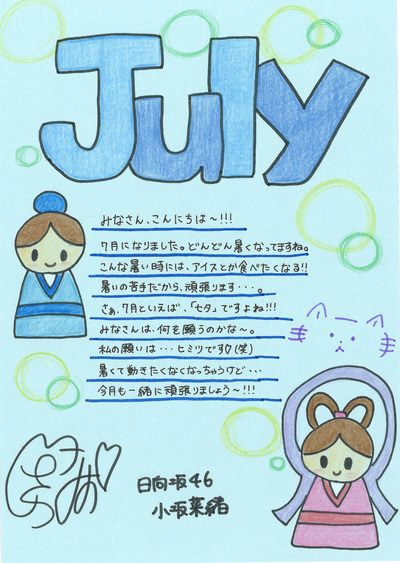 July
みなさん、こんにちは〜!!!
7月になりました。どんどん暑くなってますね。
こんな暑い時には、アイスとか食べたくなる!!
暑いの苦手だから、頑張ります・・・。
さぁ、7月といえば、「七夕」ですよね!!!
みなさんは、何を願うのかな〜。
私の願いは…ヒミツです♡(笑)
暑くて動きたくなくなっちゃうけど…
今月も一緒に頑張りましょう〜!!!
日向坂46
小坂菜緒